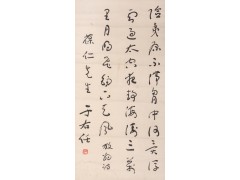 險夷原不滯胸中何異浮
雲過太空夜靜海濤三萬
里月明飛錫下天風
仁先生
于右任